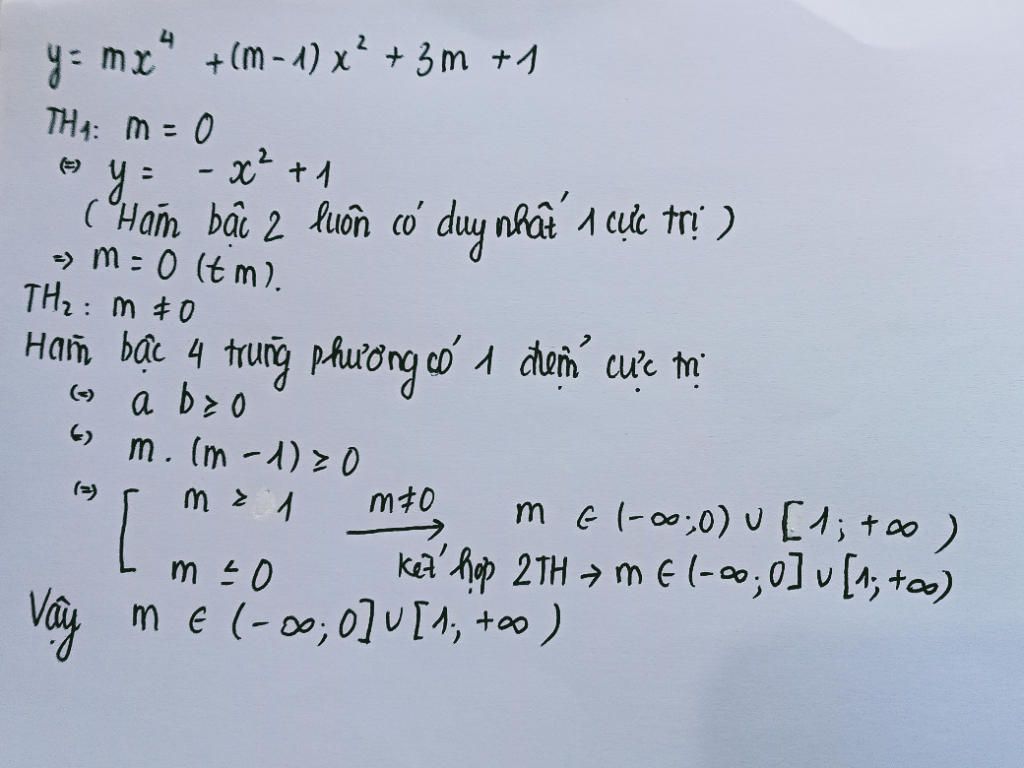 y = mx⁴ + (m - 1) x² + 3m + 1
TH1: m = 0
(=) y = - x² + 1
( Hàm bậc 2 luôn có duy nhất 1 cực trị )
=> m = 0 (tm).
TH2: m ≠ 0
Hàm bậc 4 trùng phương có 1 điểm cực trị
(=) a b ≥ 0
(=) m. (m - 1) ≥ 0
(=) [ m ≥ 1 m≠0 → m ∈ (-∞;0) ∪ [1; +∞)
m ≤ 0 kết hợp 2TH → m ∈ (-∞; 0] ∪ [1; +∞)
Vậy m ∈ (-∞; 0] ∪ [1; +∞)